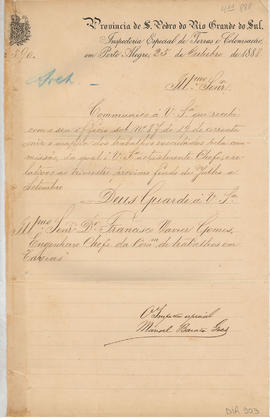 Provincia de S. Pedro do Rio Grande do Sul.
Inspectoria Especial de Terras e Colonisação,
em Porto Alegre, 25 de Outubro de 1888
Illmo Snr.
Communico á V. Sª que recebi
com o seu officio sob Nº 87 de 19 do corrente
mez o mappa dos trabalhos executados pela com-
missão, da qual é V. Sª actualmente Chefe, re-
lativos ao trimestre proximo findo de Julho a
Setembro.
Deus Guarde á V. Sª
Illmo Senr Dr Francisco Xavier Gomes,
Engenheiro Chefe da Comm de trabalhos em
O Inspector especial
Manoel
DIA 303